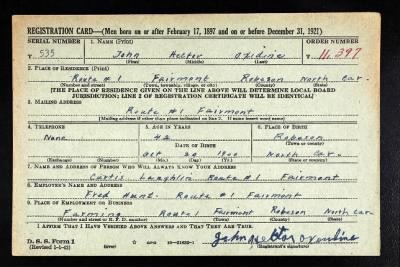 REGISTRATION CARD—(Men born on or after February 17, 1897 and on or before December 31, 1921)
SERIAL NUMBER 1. NAME (Print) ORDER NUMBER
T 535 John Hector Oxidine T 11,297
(First) (Middle) (Last)
2. PLACE OF RESIDENCE (Print)
Route #1 Fairmont Robeson North Car.
(Number and street) (Town, township, village, or city) (County) (State)
[THE PLACE OF RESIDENCE GIVEN ON THE LINE ABOVE WILL DETERMINE LOCAL BOARD
JURISDICTION; LINE 2 OF REGISTRATION CERTIFICATE WILL BE IDENTICAL]
3. MAILING ADDRESS
Route #1 Fairmont
[Mailing address if other than place indicated on line 2. If same insert word same]
4. TELEPHONE 5. AGE IN YEARS 6. PLACE OF BIRTH
None Robeson
DATE OF BIRTH (Town or county)
Oct 20 1900 North Car.
(Exchange) (Number) (Mo.) (Day) (Yr.) (State or country)
7. NAME AND ADDRESS OF PERSON WHO WILL ALWAYS KNOW YOUR ADDRESS
Curtis Laughlin Route #1 Fairmont
8. EMPLOYER'S NAME AND ADDRESS
Fred Route #1 Fairmont
9. PLACE OF EMPLOYMENT OR BUSINESS
Farming Route 1 Fairmont Robeson North Car
(Number and street or R. F. D. number) (Town) (County) (State)
I AFFIRM THAT I HAVE VERIFIED ABOVE ANSWERS AND THAT THEY ARE TRUE.
D. S. S. Form 1 John Hector
(Revised 1-1-42) (over) 16—21630-1 (Registrant's signature)